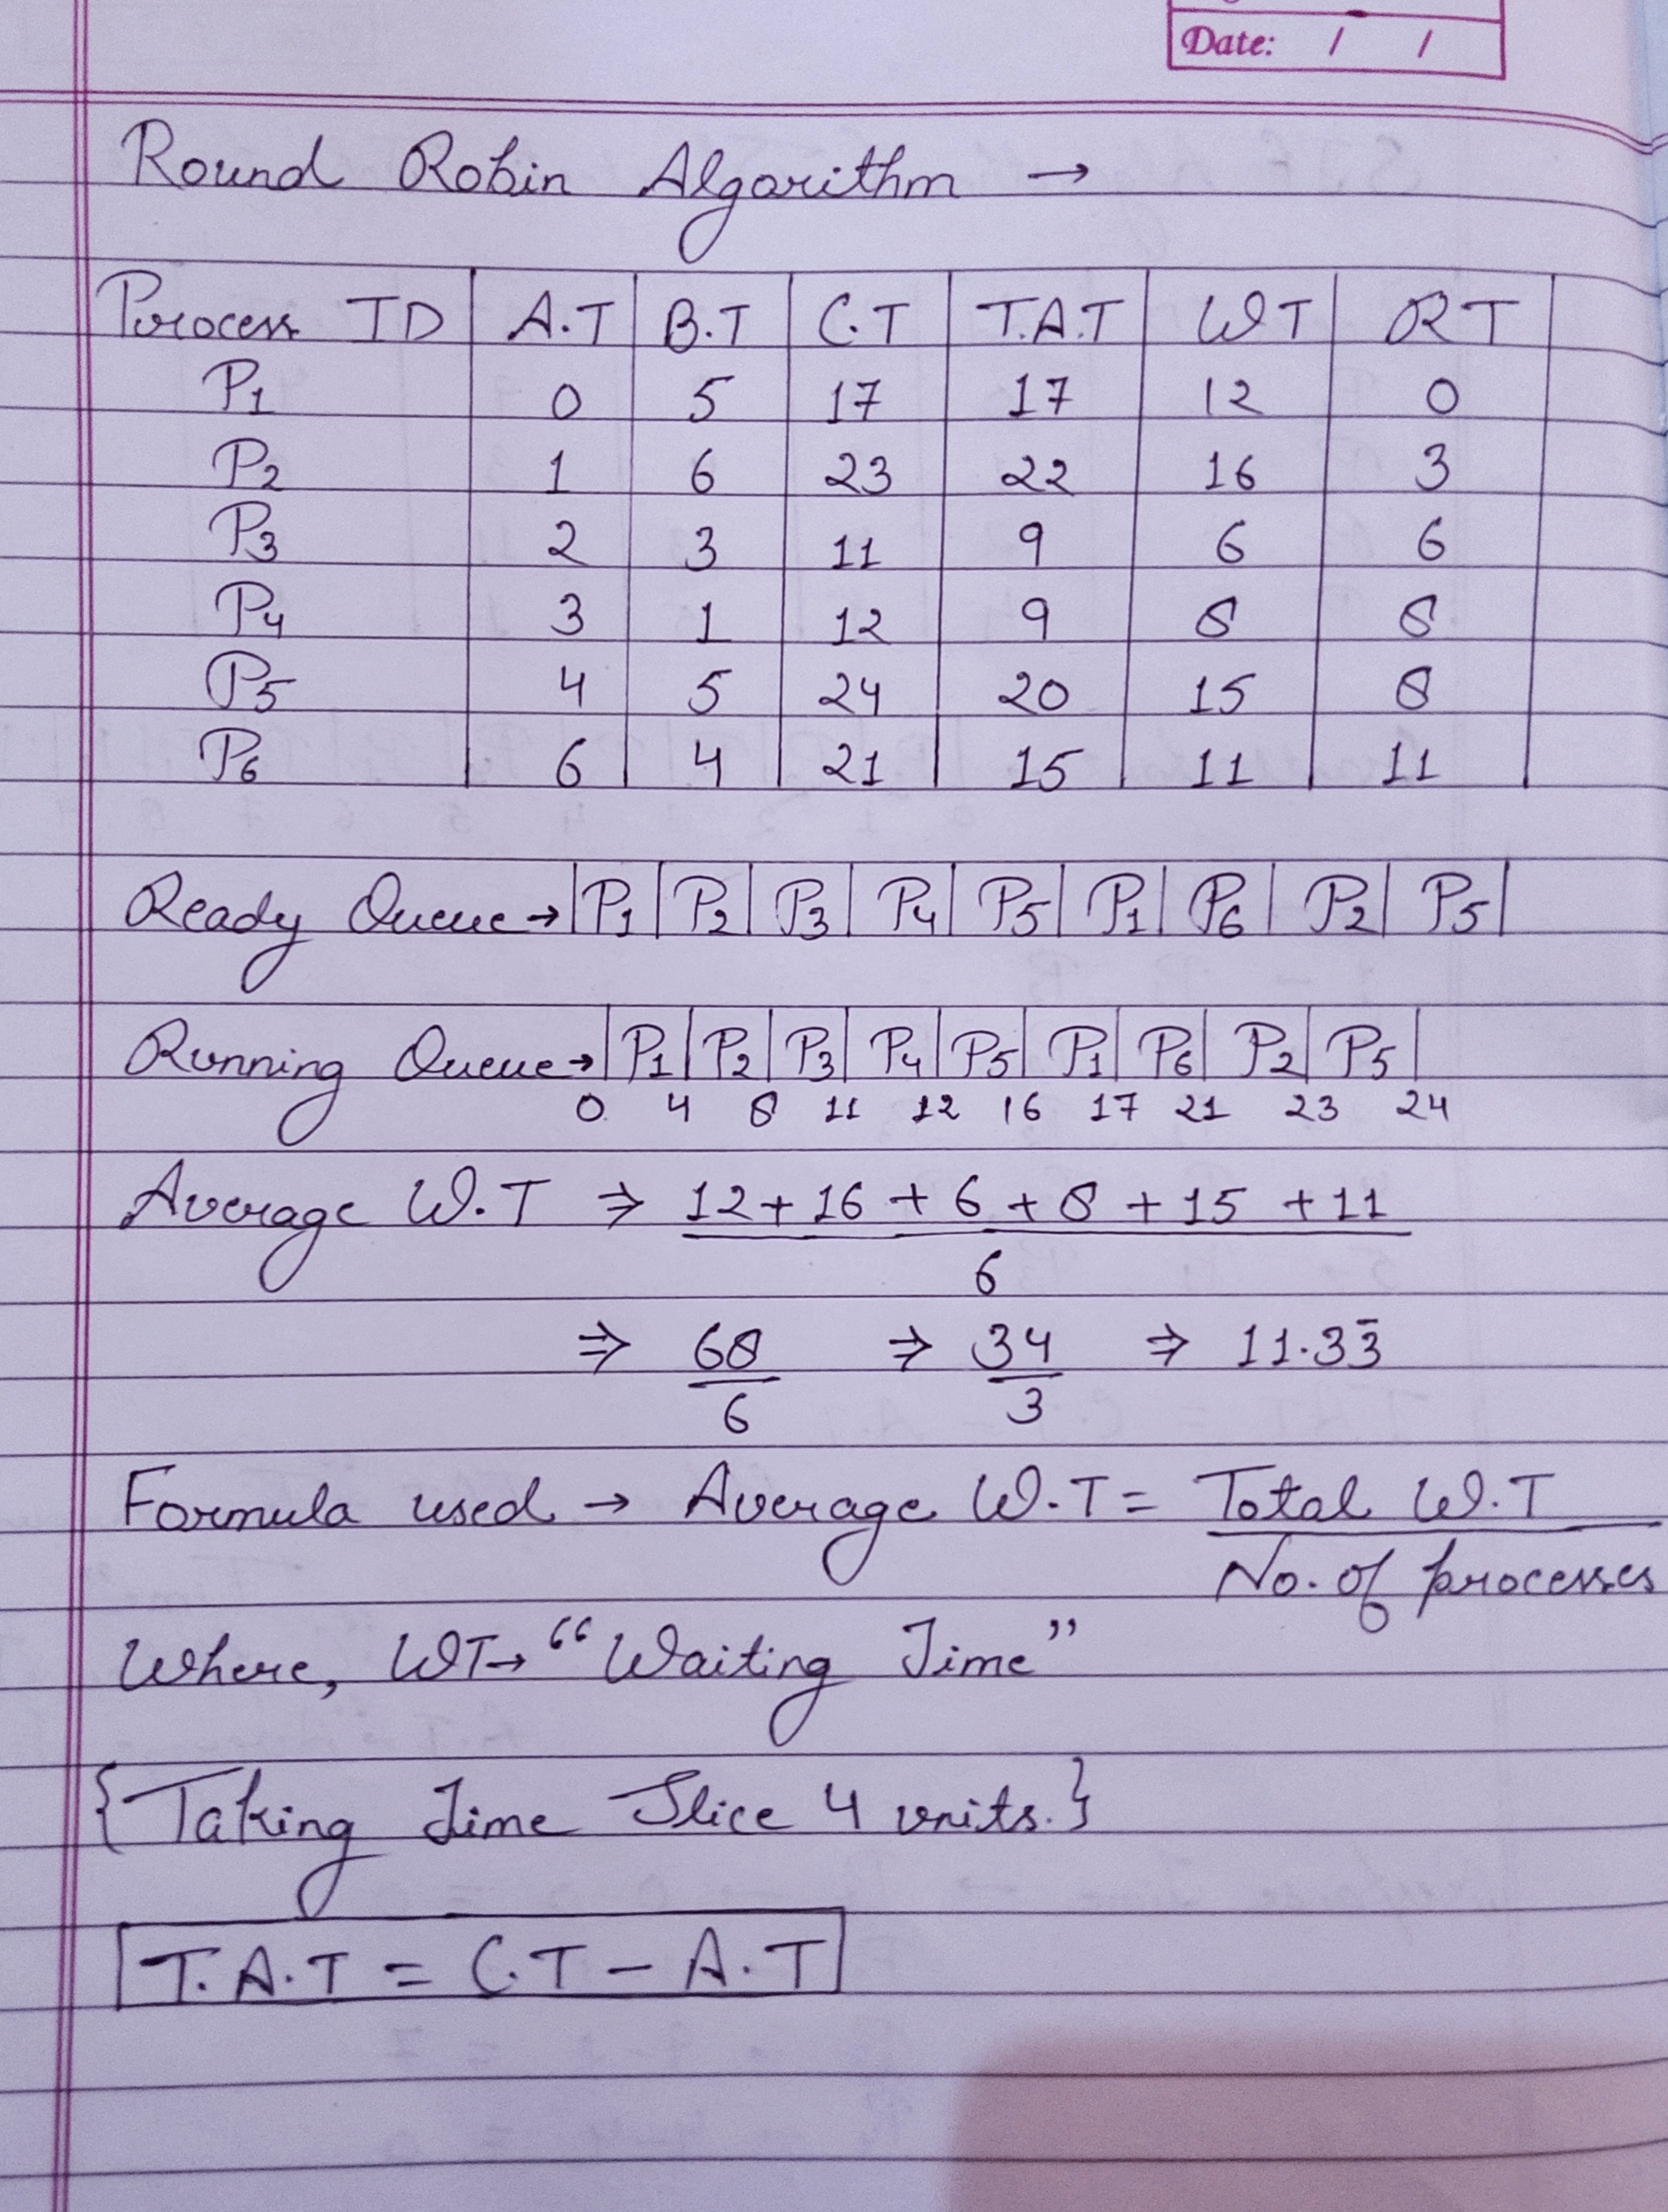 Date: / /
Round Robin Algorithm →
Process ID | A.T | B.T | C.T | T.A.T | WT | RT
P1 | 0 | 5 | 17 | 17 | 12 | 0
P2 | 1 | 6 | 23 | 22 | 16 | 3
P3 | 2 | 3 | 11 | 9 | 6 | 6
P4 | 3 | 1 | 12 | 9 | 8 | 8
P5 | 4 | 5 | 24 | 20 | 15 | 8
P6 | 6 | 4 | 21 | 15 | 11 | 11
Ready Queue → | P1 | P2 | P3 | P4 | P5 | P1 | P6 | P2 | P5 |
Running Queue → | P1 | P2 | P3 | P4 | P5 | P1 | P6 | P2 | P5 |
0 4 8 11 12 16 17 21 23 24
Average W.T ⇒ 12 + 16 + 6 + 8 + 15 + 11
6
⇒ 68 ⇒ 34 ⇒ 11.33̄
6 3
Formula used → Average W.T = Total W.T
No. of processes
Where, WT → “Waiting Time”
{Taking Time Slice 4 units.}
T.A.T = C.T – A.T